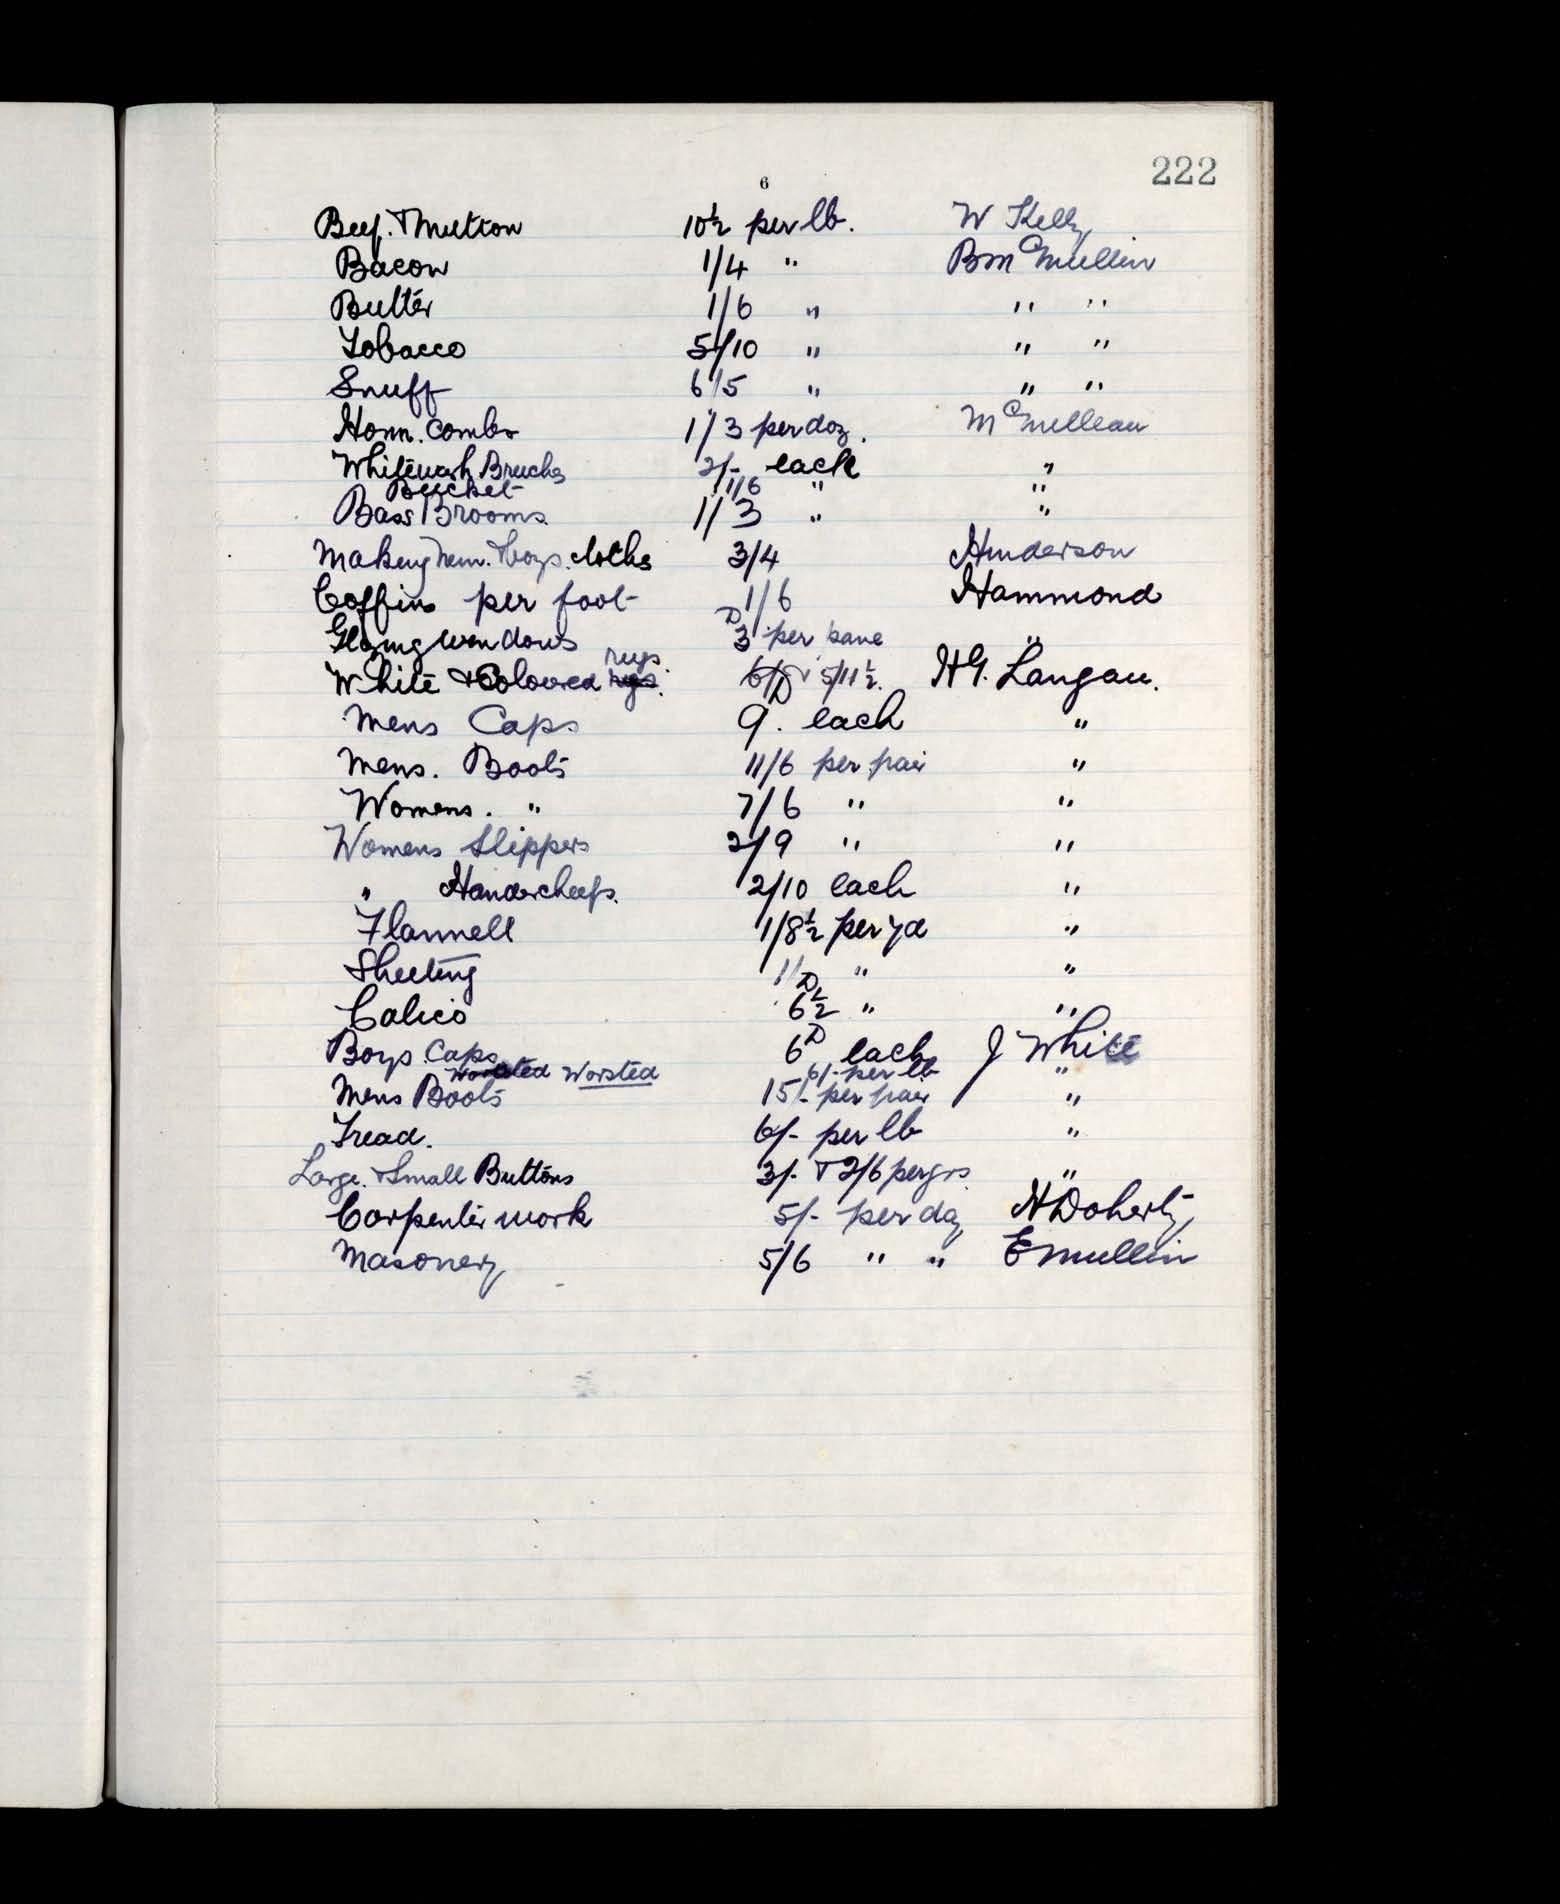 222
6
Beef. & Mutton 10½ per lb. W Kelly
Bacon 1/4 " B McMullin
Butter 1/6 " " "
Tobacco 5/10 " " "
Snuff 6/5 " " "
Horn. Combs 1/3 per doz. McMullan
Whitewash Bruchs 2/- each "
Bucket 1/6 " "
Bass Brooms 1/3 " "
Making men. & boys. cloths 3/4 Henderson
Coffins per foot 1/6 Hammond
Glazing windows 3D per pane "
White & Coloured rugs rugs. 6/ & 5/11½. H G. Langan.
Mens Caps 9D. each "
Mens. Boots 11/6 per pair "
Womens. " 7/6 " "
Womens Slippers 2/9 " "
" Handercheefs. 2/10 each "
Flannell 1/8½ per yd "
Sheeting 11 " "
Calico 6½D " "
Boys Caps 6D each J White
Worsted Worsted 6/- per lb "
Mens Boots 15/- per pair "
Tread. 6/- per lb "
Large. & Small Buttons 3/- & 2/6 per grs "
Carpenter work 5/- per day H Doherty
Masonery 5/6 " " E Mullin